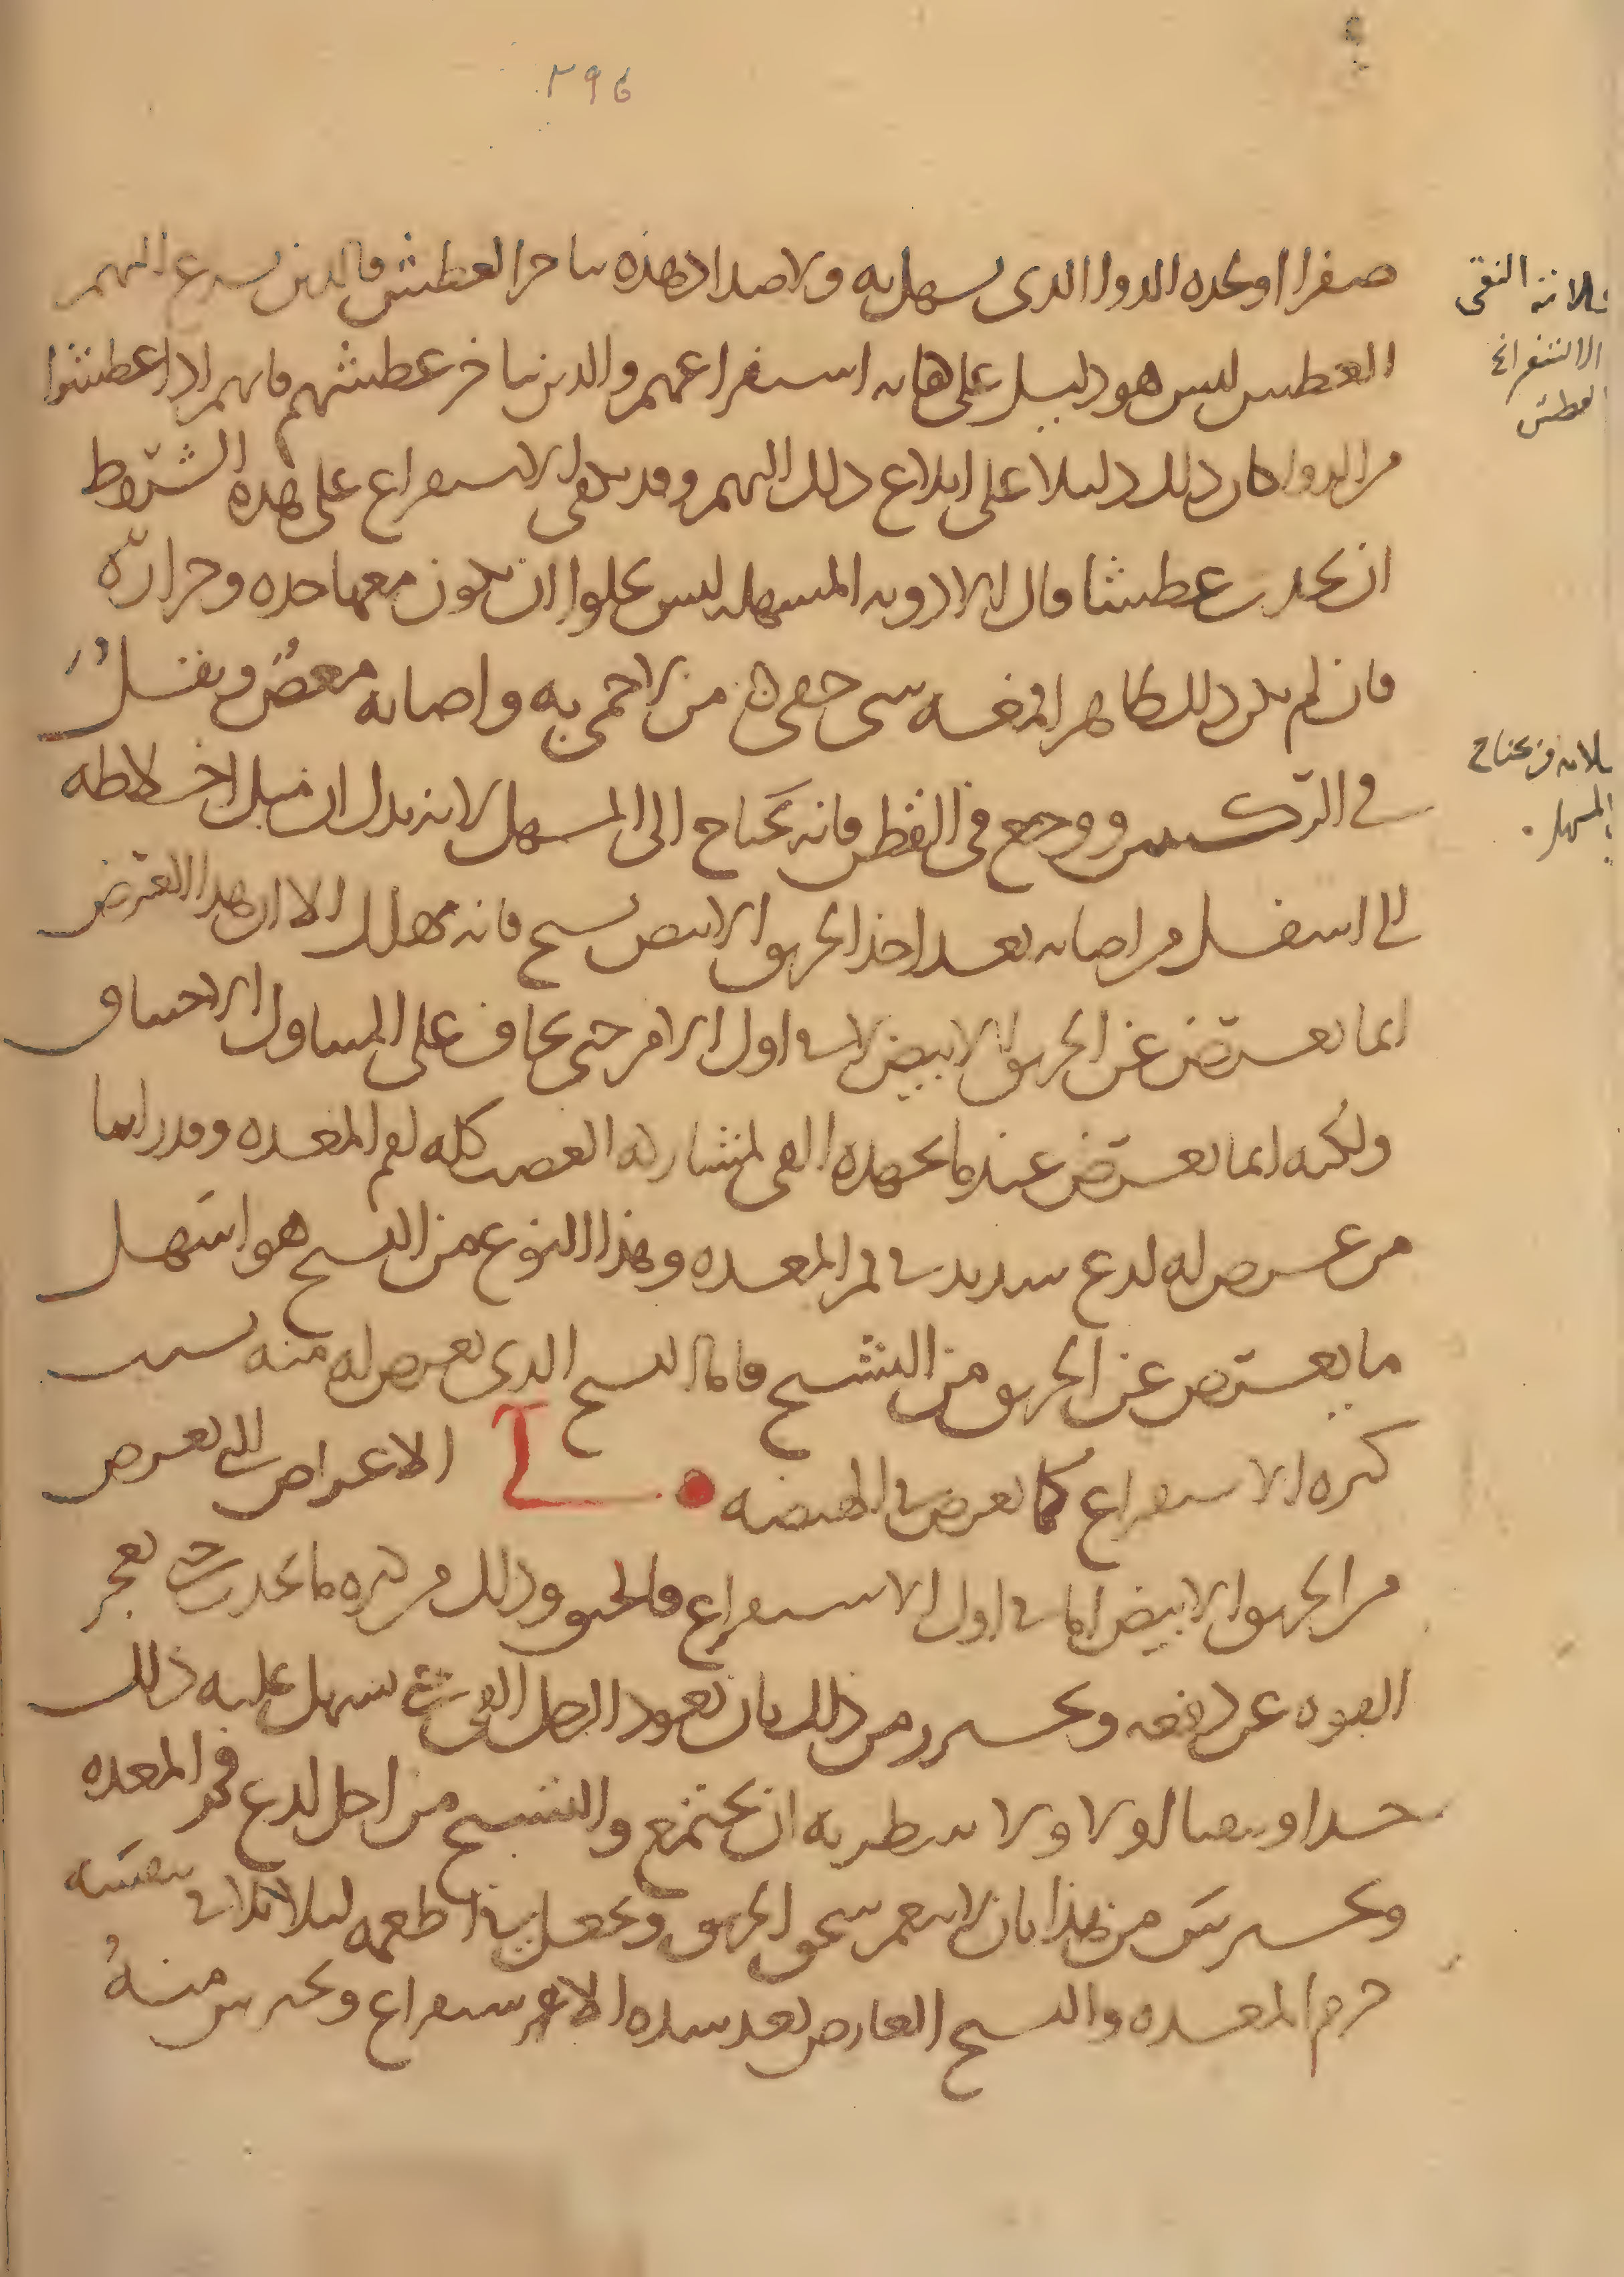 ٢٩٤
صفرا او لحده الدوا الذى يسهل به ولاضداد هذه يتاخر العطش فالذين يسرع اليهم
العطش ليس هو دليل على غاية استفراغهم والذين يتاخر عطشهم فانهم اذا عطشوا
من الدوا كان ذلك دليلا على ابلاغ ذلك اليهم وقد الاستفراغ على هذه الشروط
ان يحدث عطشا قال لان الادوية المسهلة ليس يخلوا ان يكون معها حدة وحرارة
فان لم يكن ذلك ظاهرا فى خفى من لاحمى به واصابه مغص وثقل
فى الركبتين ووجع فى القطن فانه يحتاج الى المسهل لانه يدل ان ميل اخلاطه
الى اسفل من اصابه بعد اخذ الخربق الابيض تشنج فانه مهلك الا ان هذا التعرض
انما يعترض عن الخربق الابيض لا فى اول الامر حتى يخاف على المتناول الاختناق
ولكنه انما يعترض عندما يجهده القى لمشاركة العصب كله لفم المعدة وقد راينا
من عرض له لذع شديد فى فم المعدة وهذا النوع من التشنج هو اسهل
ما يعترض عن الخربق من التشنج فاما التشنج الذى يعرض له منه بسبب
كثرة الاستفراغ كما يعرض فى الهيضة الاعراض التى تعرض
من الخربق الابيض اما فى اول الاستفراغ فالخنق وذلك من كثرة ما يحدث حتى تعجز
القوة عن دفعه ويحترز من ذلك بان يعود الرجل القى حتى يسهل عليه ذلك
جدا وينقا اولا اولا ولا ينتظر به ان يجتمع والتشنج من اجل لذع فم المعدة
ويحترس من هذا بان لا ينعم سحق الخربق ويجعل فى اطعمه ليلا
جرم المعدة والتشنج العارض بعد شدة الاستفراغ ويحترس منه
ثلاثة النقى
الاستفراغ
العطش
ثلاثة من يحتاج
المسهل